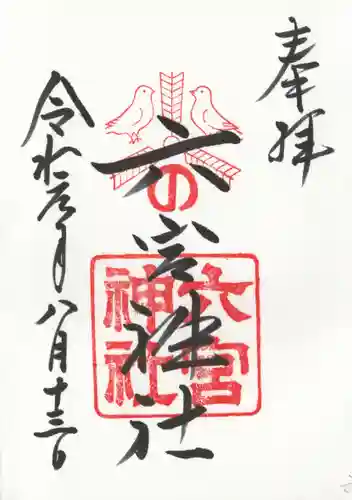 奉拝
六の宮神社
六宮
神社
令和元年八月十三日